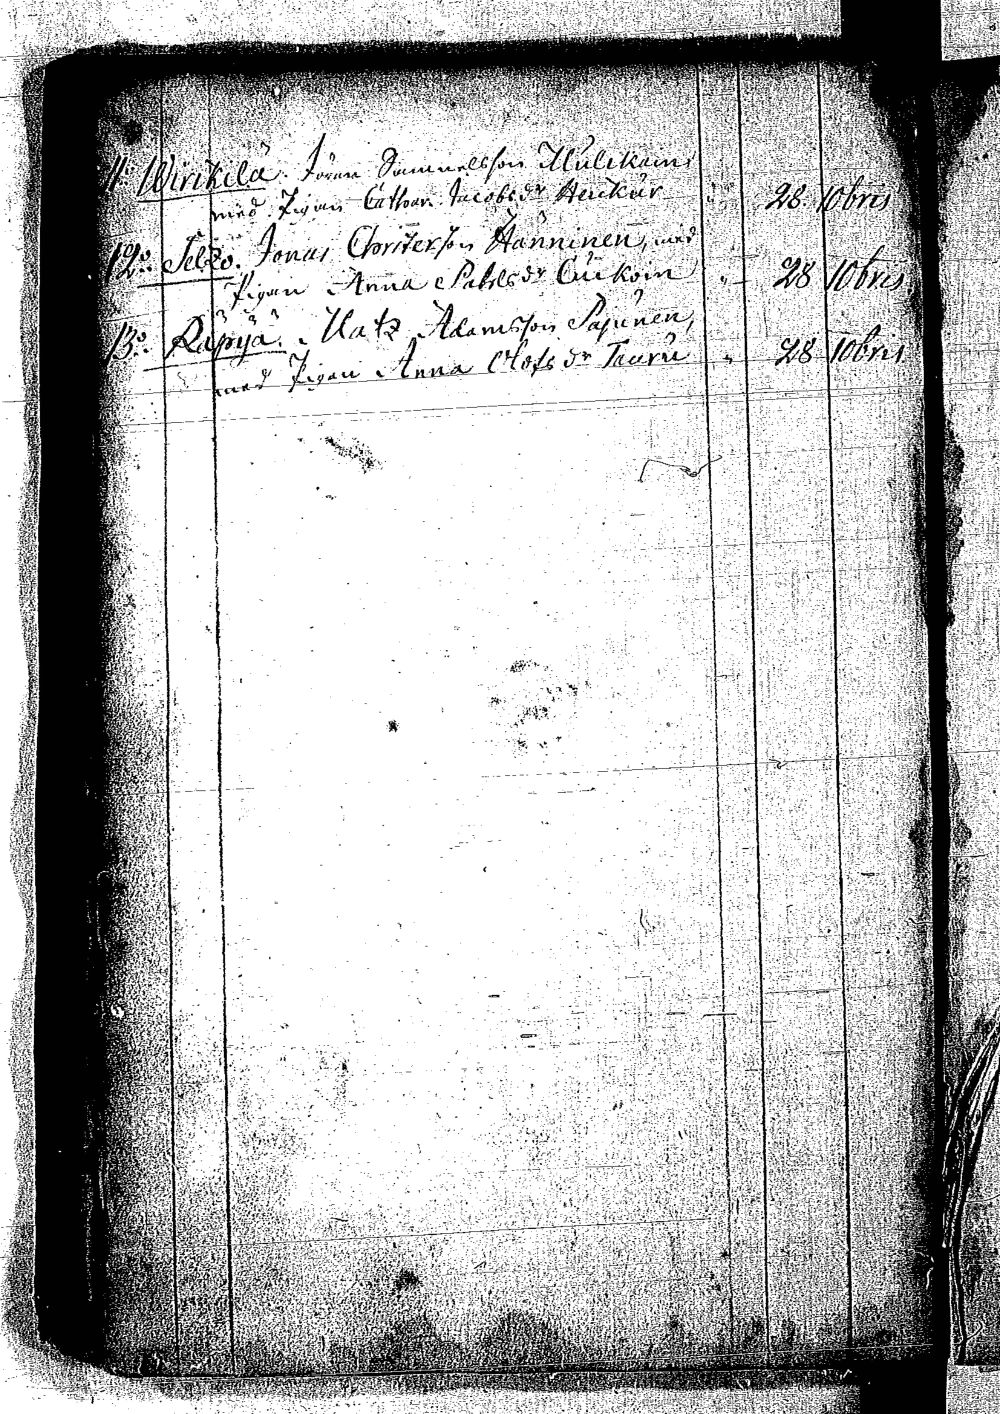 11: Wirikilä. Jöran Samuelsson Mulikain,
med Pigan Cathar. Jacobsdr Heickur " " 28. 10bris
12o: Selzo. Jonas Christerson Hänninen, med
Pigan Anna Pahlsdr Cuikoin " 28 10bris
13o: Räpyä. Matz Adamsson Pajunen,
med Pigan Anna Olofsdr Tauru " 28 10bris